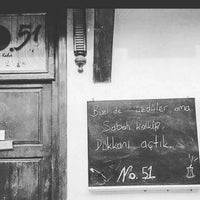 51
Bizi de üzdüler ama
Sabah kalkıp,
Dükkanı açtık.
No. 51